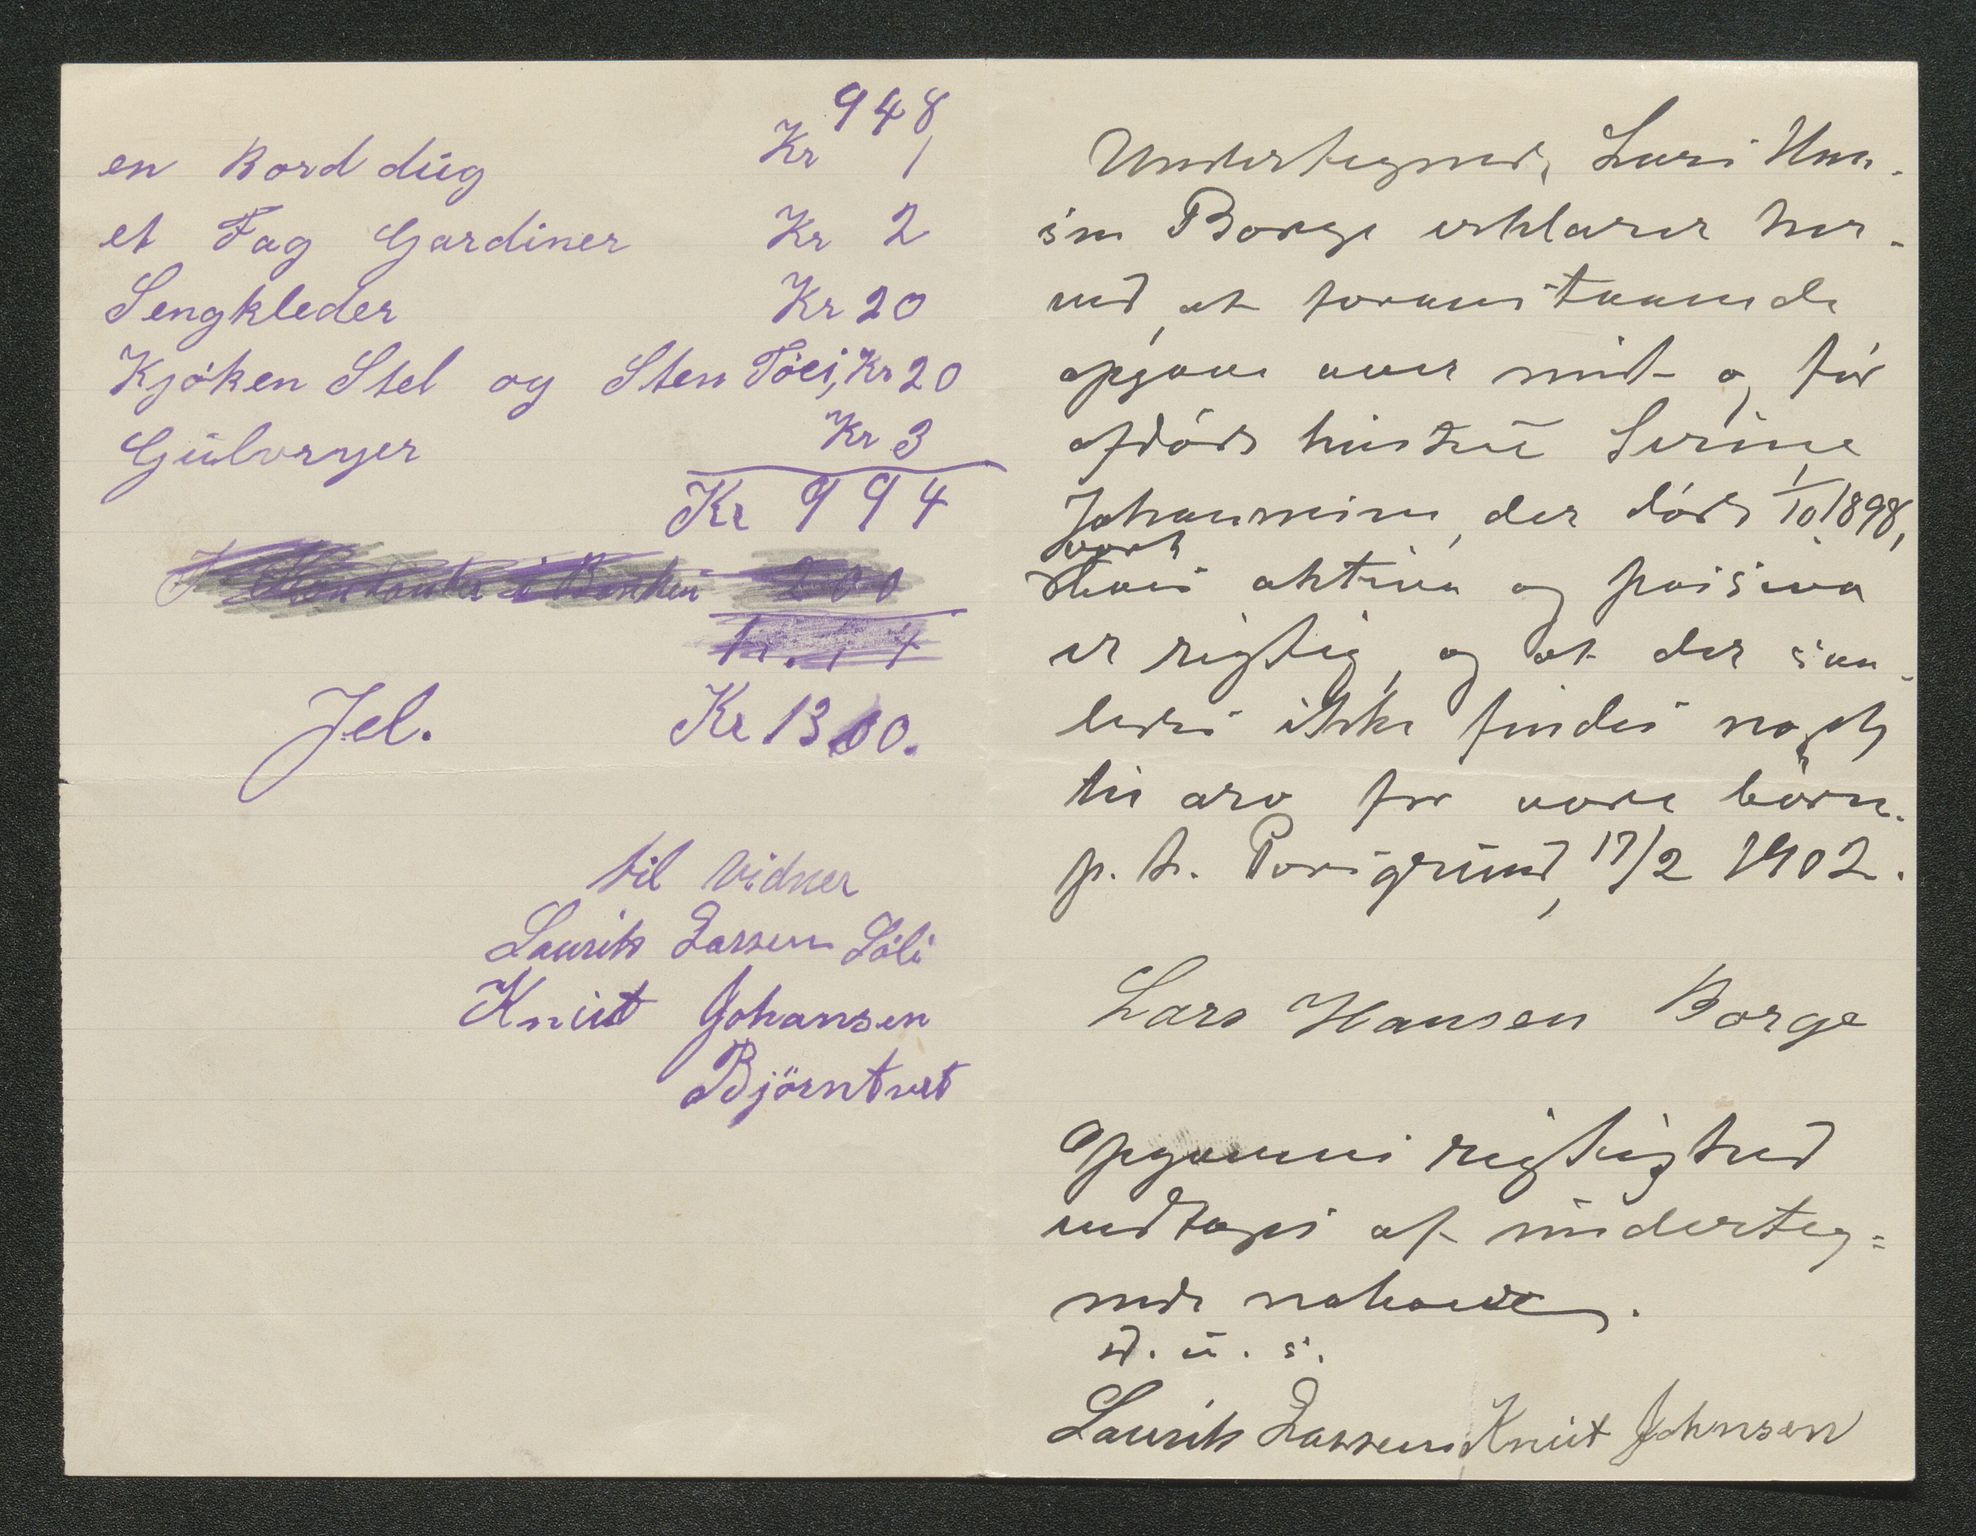 948
en Borddug Kr 1
et Fag Gardiner Kr 2
Sengkleder Kr 20
Kjöken Stel og Sten Töei, Kr 20
Gulvryer Kr 3
Kr 994
Kontanter i Banken 200
Jel. Kr 1300.
til vidner
Laurits Larssen Löli
Knut Johansen
Björntvet
Undertegnede, Lars Han-
sen Borge erklærer her-
ved, at foranstaaende
opgave over mit og før
afdøde hustru Serine
Johannesine, der døde 1/10 1898,
vort
boes aktiva og passiva
er rigtig, og at der saa-
ledes ikke findes noget
til arv for vore børn.
p. t. Porsgrund, 17/2 1902.
Lars Hansen Borge
Opgavens rigtighed
vedtages af underteg=
nede naboer.
D. u. s.
Laurits Larssen Knut Johnsen